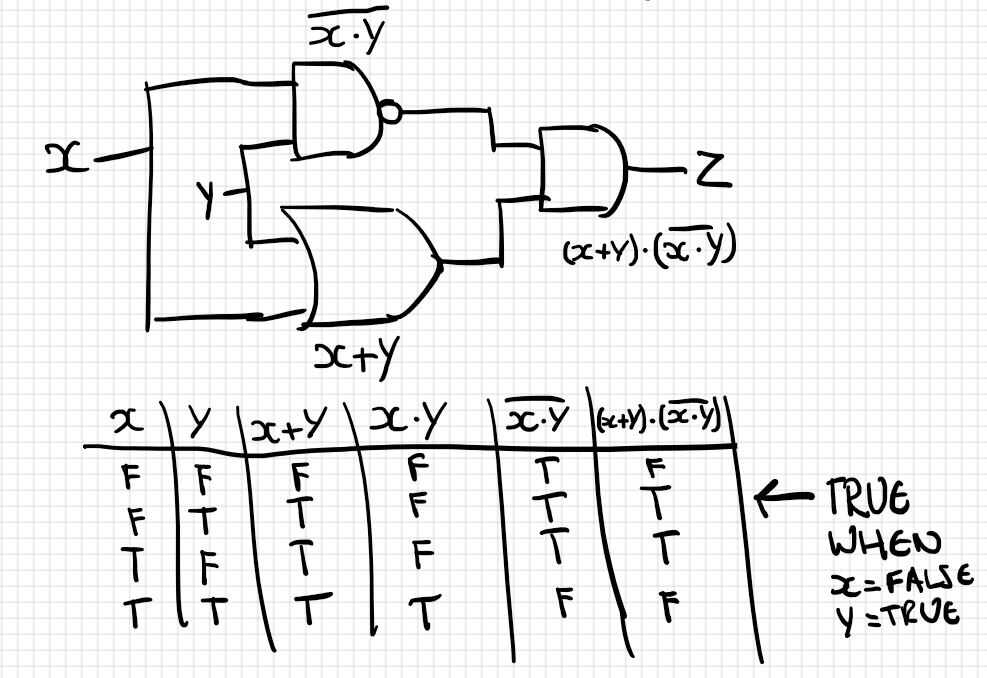 x̅·̅Y̅
x
Y
Z
(x+Y)·(x̅·̅Y̅)
x+Y
x Y x+Y x·Y x̅·̅Y̅ (x+Y)·(x̅·̅Y̅)
F F F F T F
F T T F T T
T F T F T T
T T T T F F
TRUE
WHEN
x=FALSE
Y=TRUE